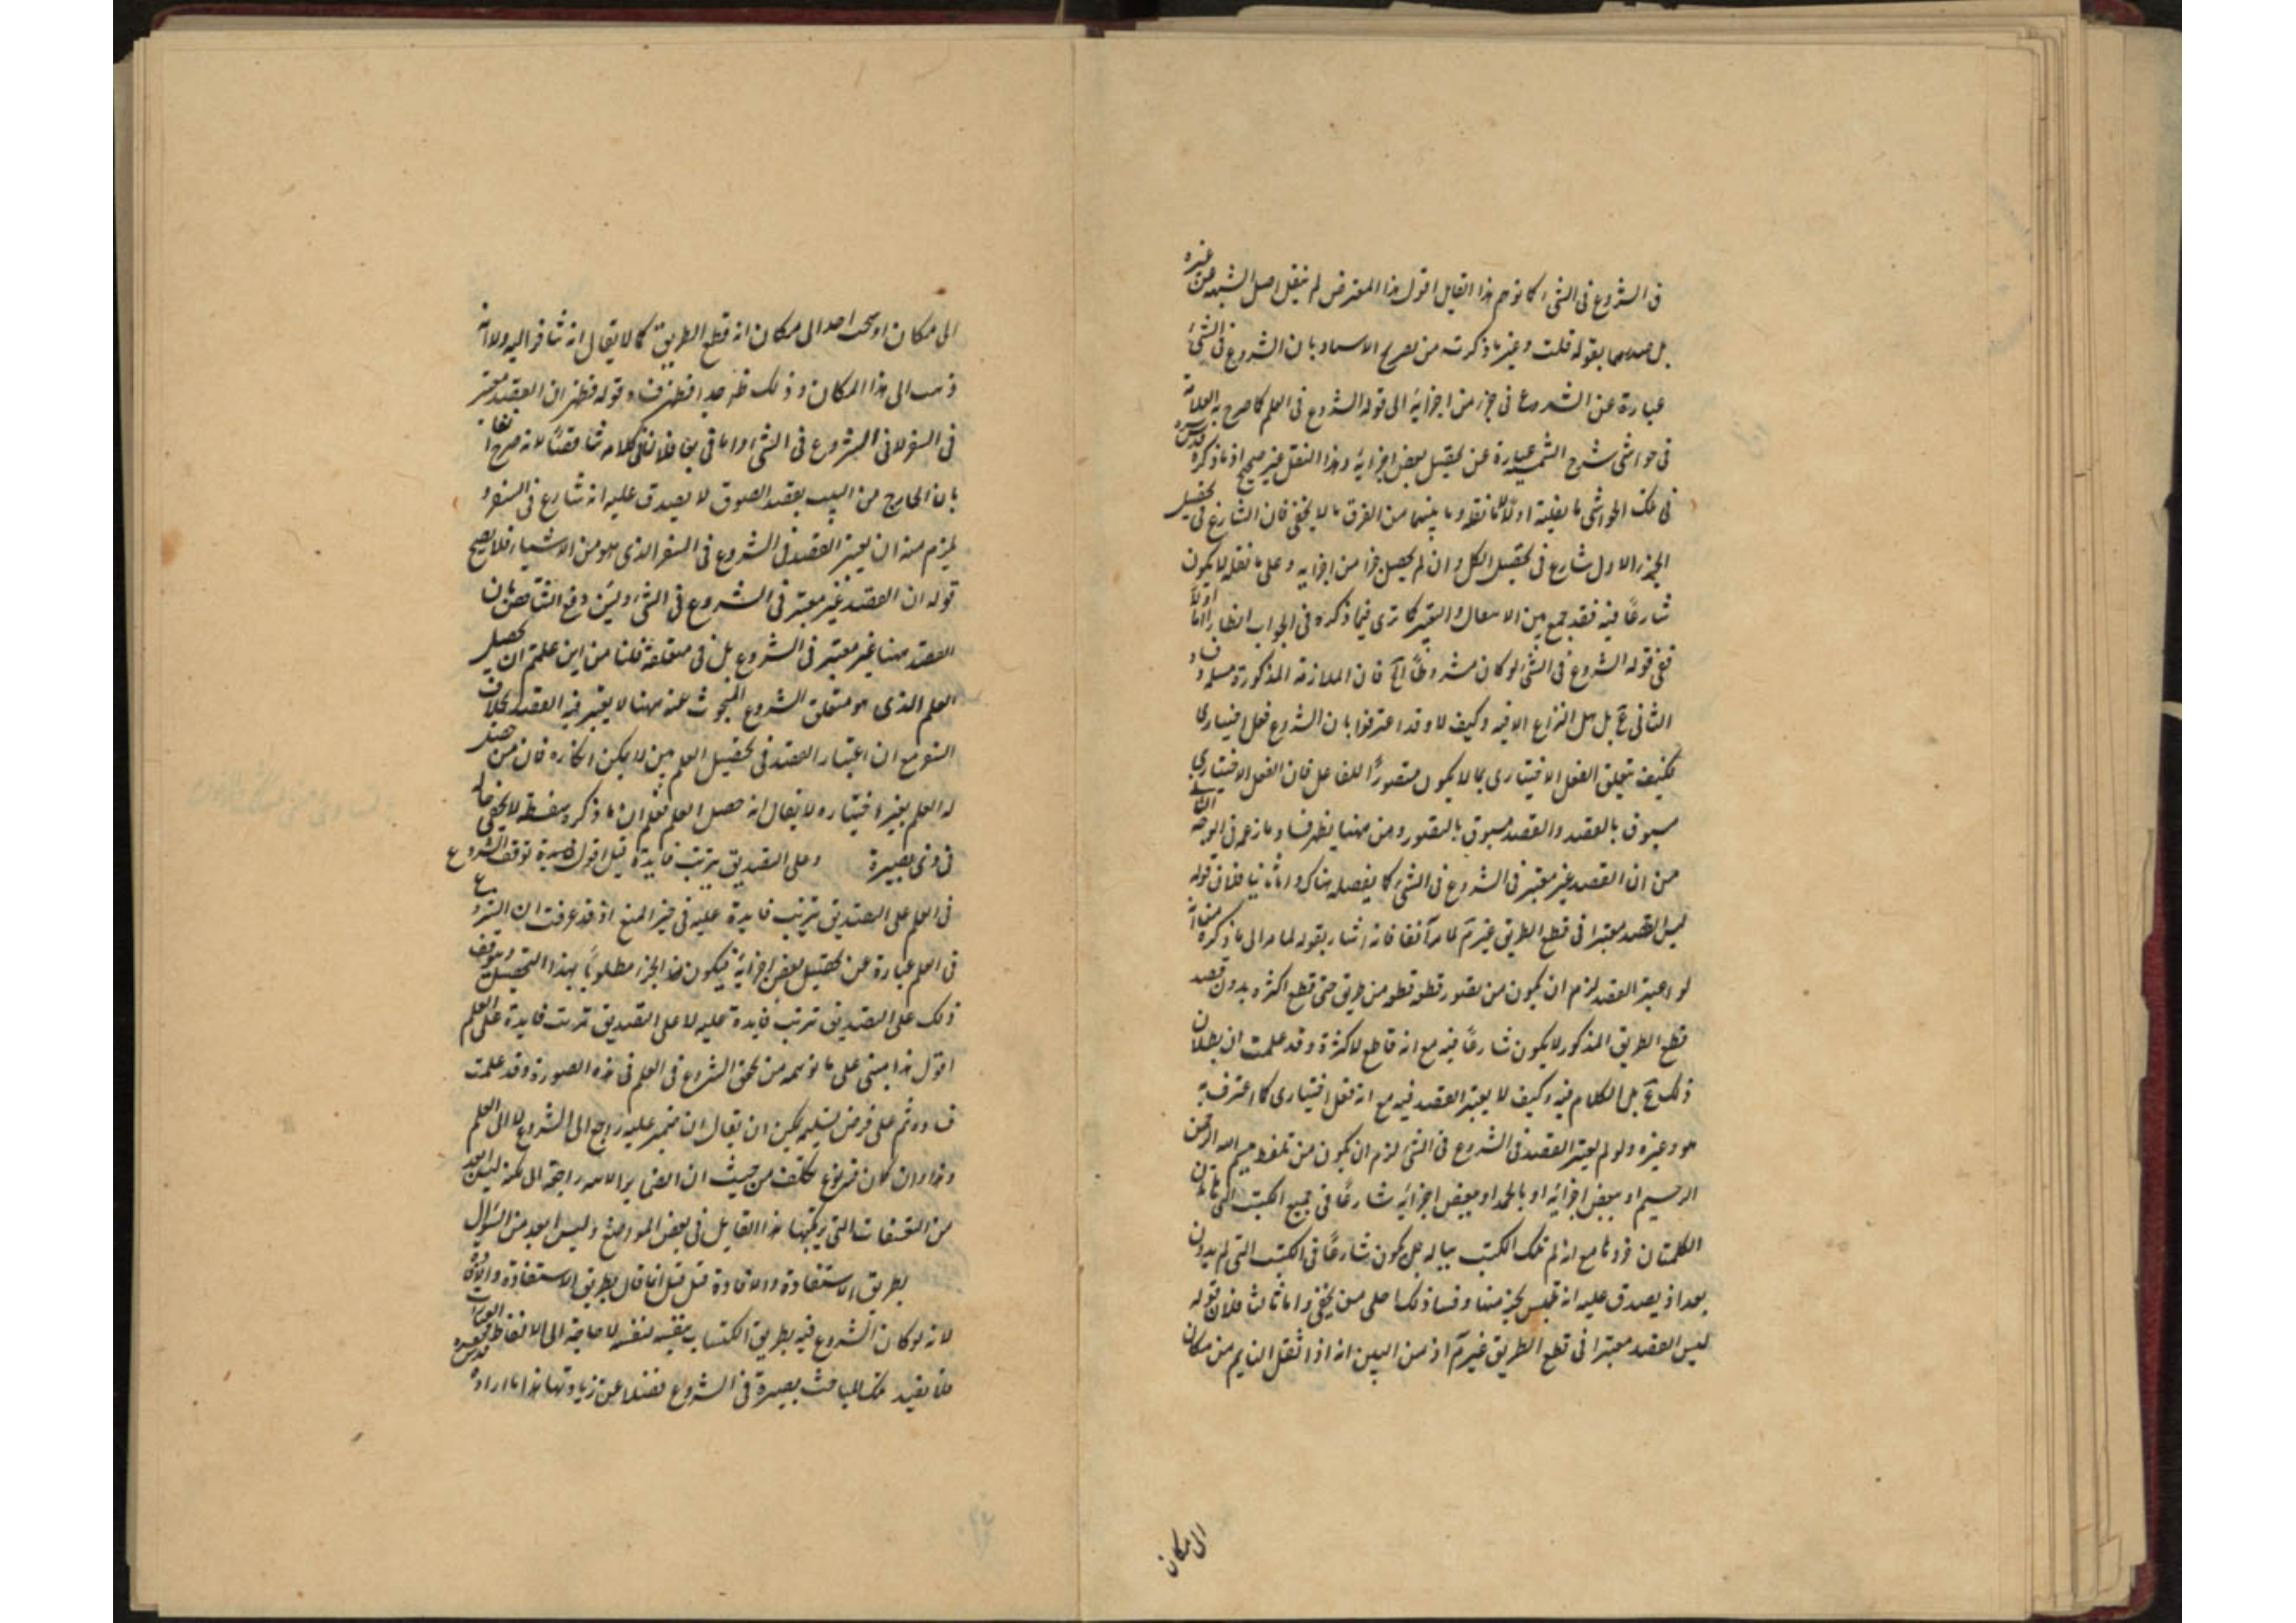 فى الشروع فى الشئ كما توهم هذا القايل اقول هذا المعترض لم ينقل اصل الشبهه عن غيره
بل بقوله قلت وغير ما ذكرت من بان الشروع فى الشئ
عبارة عن الشروع فى جزء من اجزائه الى قوله الشروع فى العلم كما صرح به العلامة
فى حواشى شرح الشمسيه عبارة عن تحصيل بعض اجزائه وهذا النقل غير صحيح اذ ما ذكره قدس سره
فى تلك الحواشى ما نقلته اولا لا ما نقله وما بينهما من الفرق ما لا يخفى فان الشارع فى تحصيل
الجزء الاول شارع فى تحصيل الكل وان لم يحصل جزأ من اجزايه وعلى ما نقله لا يكون
شارعًا فيه فقد جمع بين و كما ترى فيما ذكره فى الجواب انظار اما اولًا
ففى قوله الشروع فى الشئ لو كان مشروطًا الخ فان الملازمة المذكورة مسلمة و
الثانى مم بل هل النزاع الا فيه وكيف لا وقد اعترفوا بان الشروع فعل اختيارى
فكيف يتعلق الفعل الاختيارى بما لا يكون متصورًا للفاعل فان الفعل الاختيارى
مسبوق بالقصد والقصد مسبوق بالتصور ومن ههنا يظهر فساد ما زعمه فى الوجه
من ان القصد غير معتبر فى الشروع فى الشئ كما يفصله هناك واما ثانيا فلان قوله
ليس القصد معتبرا فى قطع الطريق غير تم لما مر آنفا فانه اشار بقوله لما مر الى ما ذكره من انه
لو اعتبر القصد لزم ان يكون من تصور قطع قطعه من طريق حتى قطع اكثره بدون قصد
قطع الطريق المذكور لا يكون شارعًا فيه مع انه قاطع لاكثره وقد علمت ان بطلان
ذلك مم بل الكلام فيه وكيف لا يعتبر القصد فيه مع انه فعل اختيارى كما اعترف به
هو وغيره ولو لم يعتبر القصد فى الشروع فى الشئ لزم ان يكون من تلفظ ببسم الله الرحمن
الرحيم او ببعض اجزائه او بالحمد او ببعض اجزائه شارعًا فى جميع الكتب التى
الكلمتان جزؤها مع انه لم تلك الكتب بباله بل يكون شارعًا فى الكتب التى لم يدون
بعد اذ يصدق عليه انه تلبس بجزء منها وفساد ذلك على من يخفى واما ثالثا فلان قوله
ليس القصد معتبرا فى قطع الطريق غير تم اذ من البين انه اذا انتقل النايم من مكان
الى مكان
الى مكان او سحب احد الى مكان انه قطع الطريق كما لا يقال انه سافر اليه ولا انه
ذهب الى هذا المكان وذلك ظ جدا فظهر ف وقوله فظهر ان القصد معتبر
فى السفر لا فى الشروع فى الشئ اما فلان فى كلامه تناقضًا لانه صرح آنفا
بان الخارج من البيت بقصد السوق لا يصدق عليه انه شارع فى السفر و
يلزم منه ان يعتبر القصد فى الشروع فى السفر الذى هو من الاشياء فلا يصح
قوله ان القصد غير معتبر فى الشروع فى الشئ ولئن دفع التناقض بان
القصد ههنا غير معتبر فى الشروع بل فى متعلقه قلنا من اين علمتم ان تحصيل
العلم الذى هو متعلق الشروع المبحوث عنه ههنا لا يعتبر فيه القصد بخلاف
السفر مع ان اعتبار القصد فى تحصيل العلم بين لا يمكن انكاره فان من حصل
له العلم بغير اختياره لا يقال انه حصل العلم فعلم ان ما ذكره سفسطه لا يخفى حاله
على ذى بصيرة وعلى التصديق بترتب فايدة قيل اقول توقف الشروع
فى العلم على التصديق بترتب فايدة عليه فى حيز المنع اذ قد عرفت ان الشروع
فى العلم عبارة عن تحصيل بعض اجزائه فيكون هذا الجزء مطلوبًا بهذا التحصيل ويتوقف
ذلك على التصديق بترتب فايدة عليه لا على التصديق بترتب فايدة على العلم
اقول هذا مبنى على ما توهمه من تحقق الشروع فى العلم فى هذه الصورة وقد علمت
فساده ثم على فرض تسليمه يمكن ان يقال ان ضمير عليه راجع الى الشروع لا الى العلم
وهذا وان كان فيه نوع تكلف من حيث ان الضماير الاخر راجعة الى لكنه ليس ابعد
من التعسفات التى يرتكبها هذا القايل فى بعض المواضع وليس ابعد من السؤال
بطريق الاستفادة والافادة قيل قيل انما قال بطريق الاستفادة والافادة
لانه لو كان الشروع فيه بطريق اكتساب بنفسه لنفسه لا حاجة الى الالفاظ
فلا يفيد تلك المباحث بصيرة فى الشروع فضلا عن زيادتها هذا ما اراده